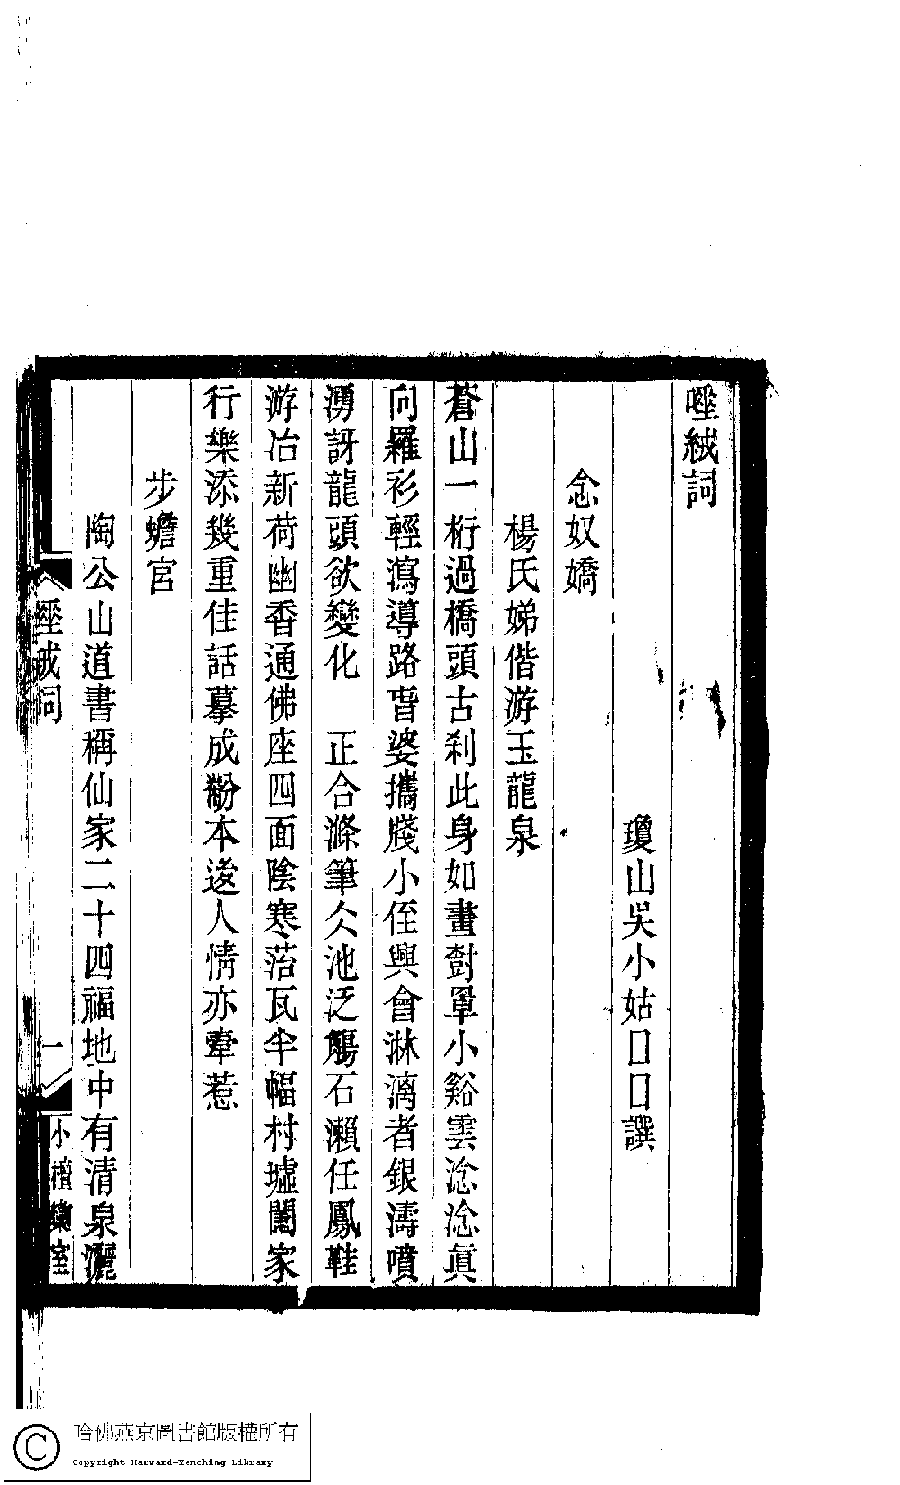 唾絨詞
瓊山吳小姑口口譔
念奴嬌
楊氏娣偕游玉龍泉
蒼山一桁過橋頭古刹此身如畫對罩小谿雲淰淰眞
向羅衫輕瀉導路
婆攜牋小侄興會淋漓者銀濤噴
湧訝龍頭欲變化　正合滌筆仌池泛觴石瀨任鳳鞋
游冶新荷幽香通佛座四面陰寒菭瓦半幅村墟闔家
行樂添幾重佳話摹成粉本後人情亦牽惹
步蟾宮
陶公山道書稱仙家二十四福地中有清泉灑
唾絨詞
一
小檀欒室
哈佛燕京圖書館版權所有
Copyright Harvard-Yenching Library